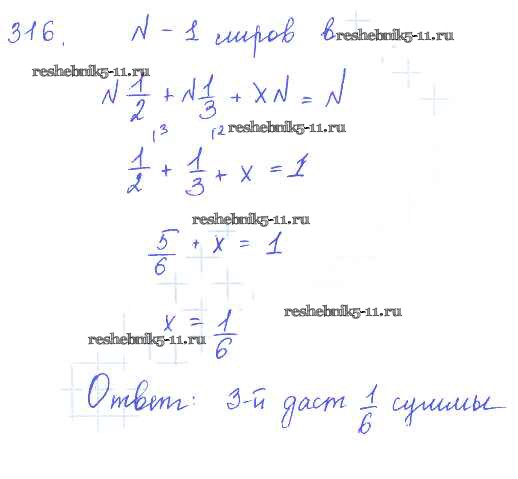 316. N - 1 миров в
reshebnik5-11.ru
reshebnik5-11.ru
N 1/2 + N 1/3 + xN = N
reshebnik5-11.ru
1/2 |3 + 1/3 |2 + x = 1
reshebnik5-11.ru
5/6 + x = 1
reshebnik5-11.ru
x = 1/6
reshebnik5-11.ru
Ответ: 3-й даст 1/6 суммы